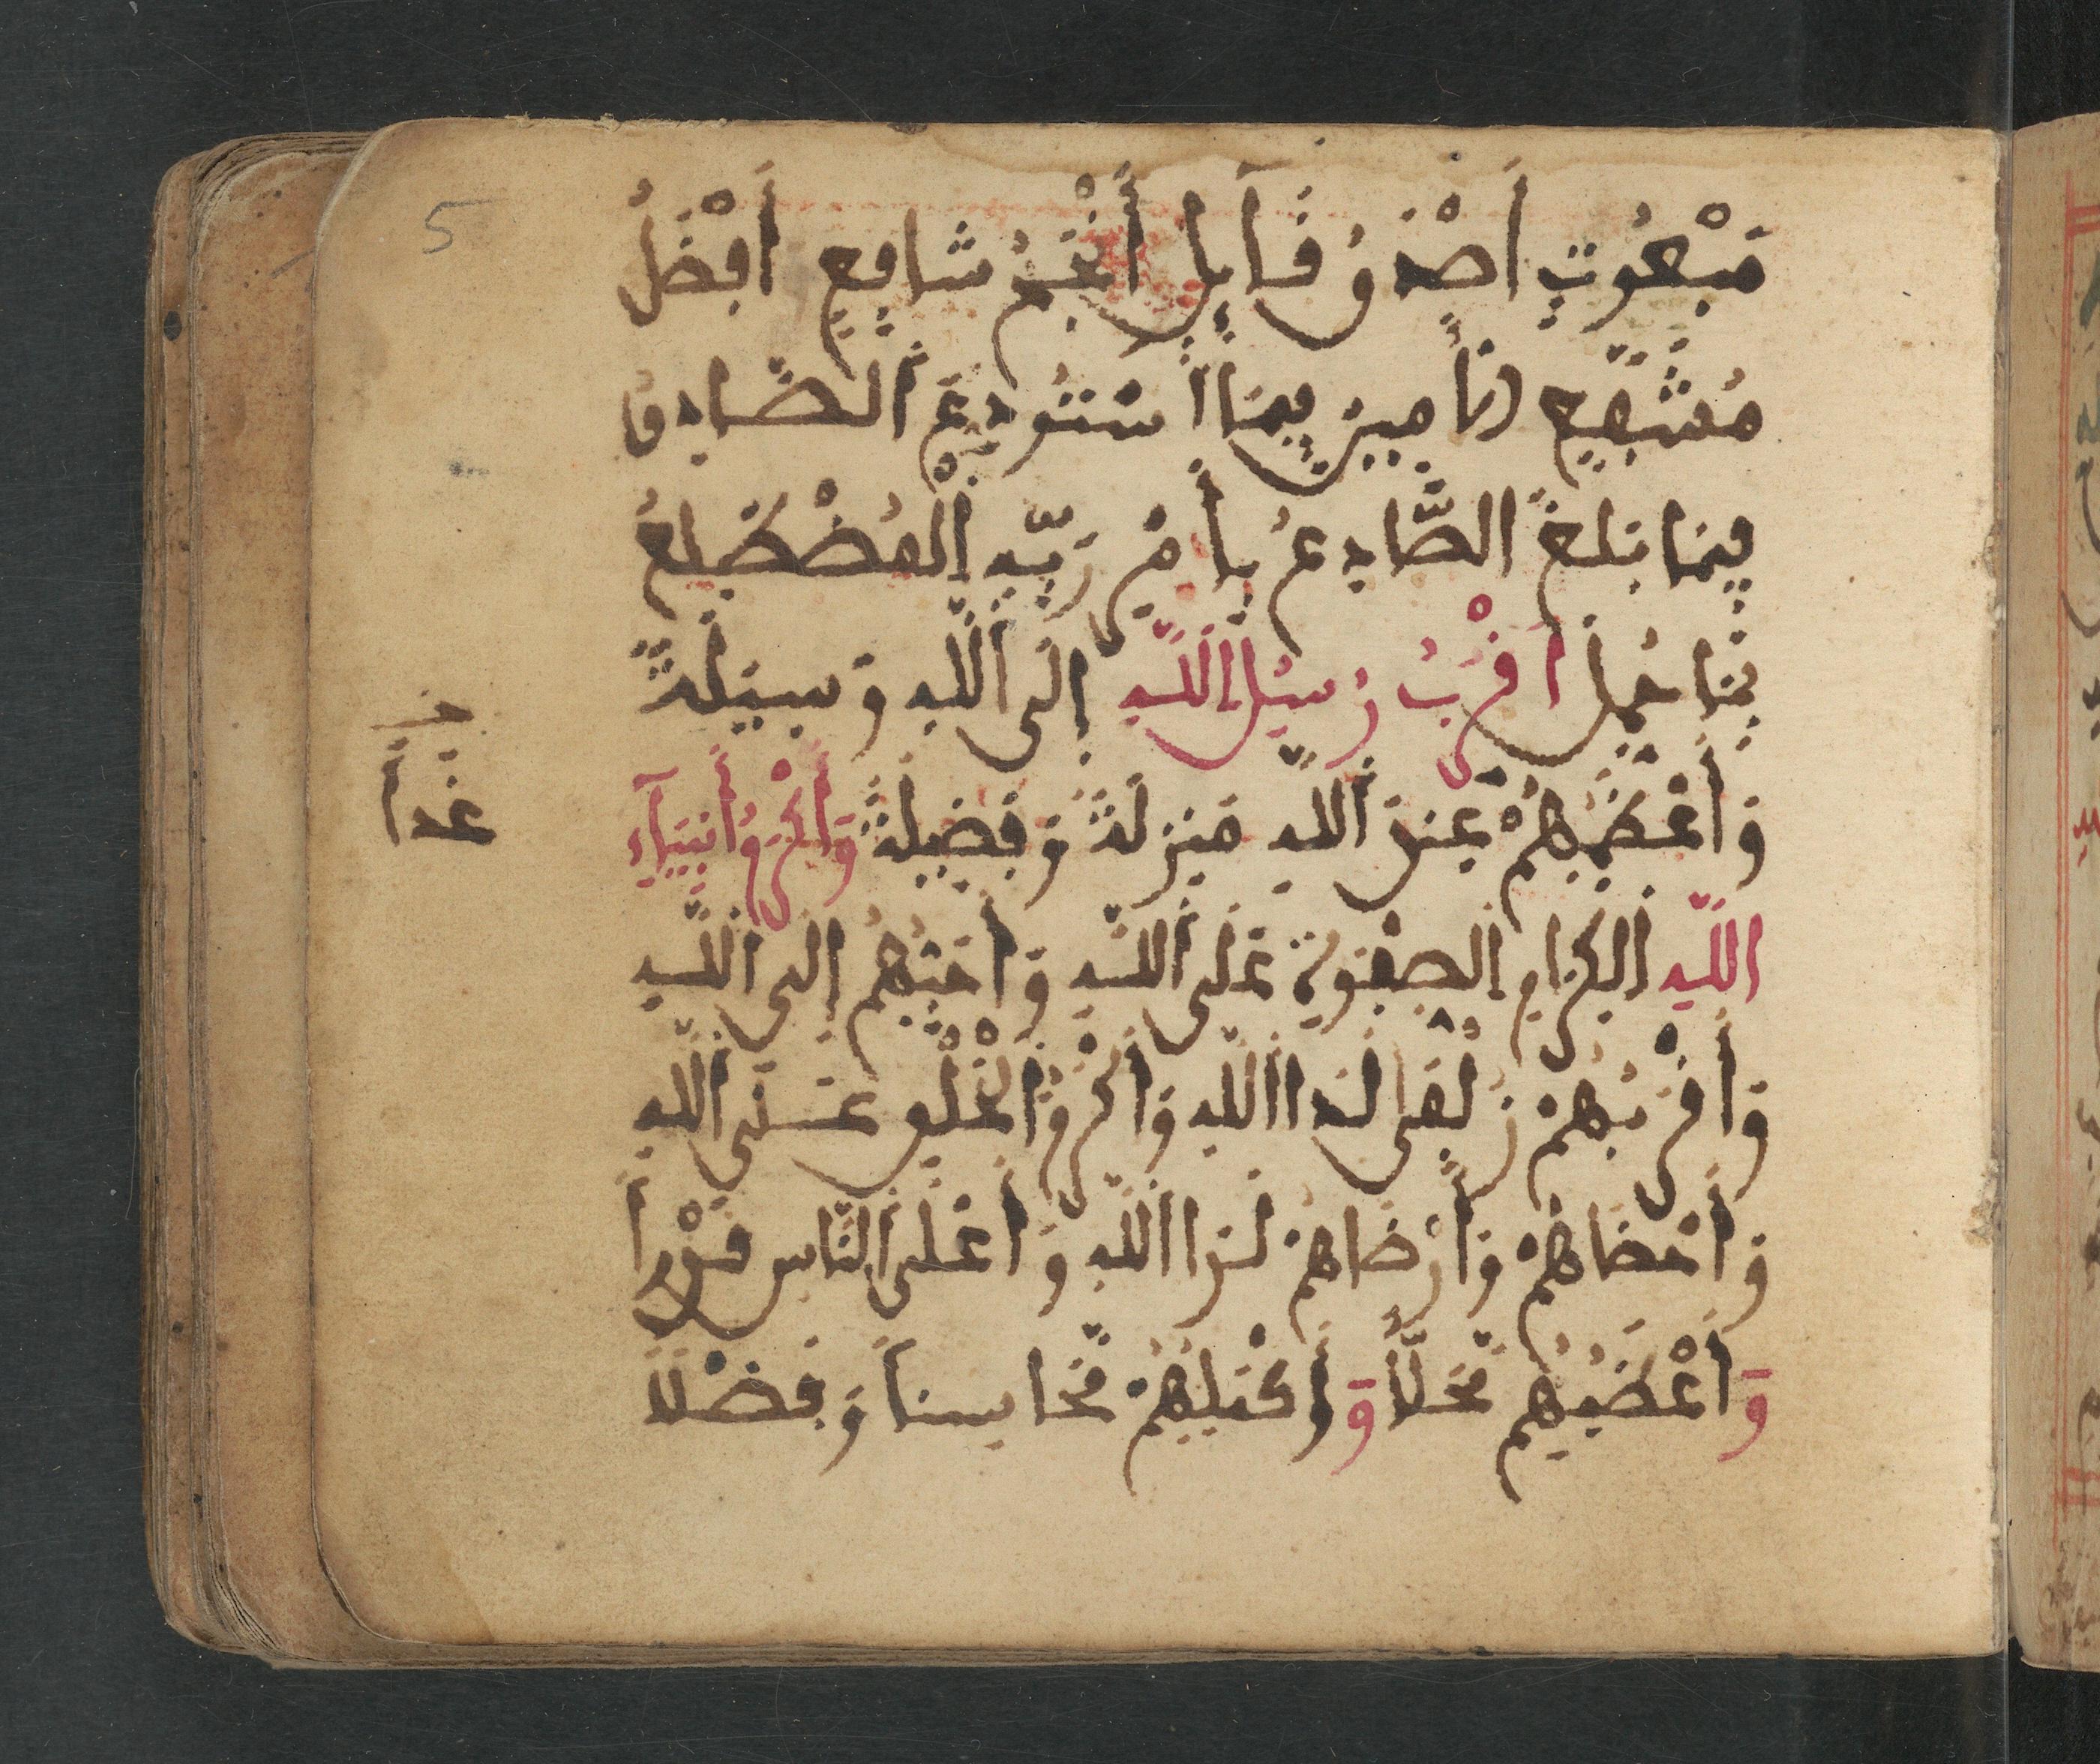 5
مَبْعُوثٍ أَصْدَقُ قَآيِلٍ أَنْجَحُ شَافِعٍ أَفْضَلُ
مُشَفَّعٍ الأَمِينُ فِيمَا اسْتُودِعَ الصَّادِقُ
فِيمَا بَلَّغَ الصَّادِعُ بِأَمْرِ رَبِّهِ الْمُضْطَلِعُ
بِمَا حُمِّلَ أَقْرَبُ رُسُلِ اللَّهِ إِلَى اللَّهِ وَسِيلَةً
وَأَعْظَمُهُمْ عِنْدَ اللَّهِ مَنْزِلَةً وَفَضِيلَةً وَأَكْرَمُ أَنْبِيَآءِ
خـ
غداً
اللَّهِ الْكِرَامِ الصَّفْوَةِ عَلَى اللَّهِ وَأَحَبُّهُمْ إِلَى اللَّهِ
وَأَقْرَبُهُمْ زُلْفَى لَدَا اللَّهِ وَأَكْرَمُ الْخَلْقِ عَلَى اللَّهِ
وَأَحْضَاهُمْ وَأَرْضَاهُمْ لَدَا اللَّهِ وَأَعْلَى النَّاسِ قَدْراً
وَأَعْظَمُهُمْ مَحَلّاً وَأَكْمَلُهُمْ مَحَاسِناً وَفَضْلاً